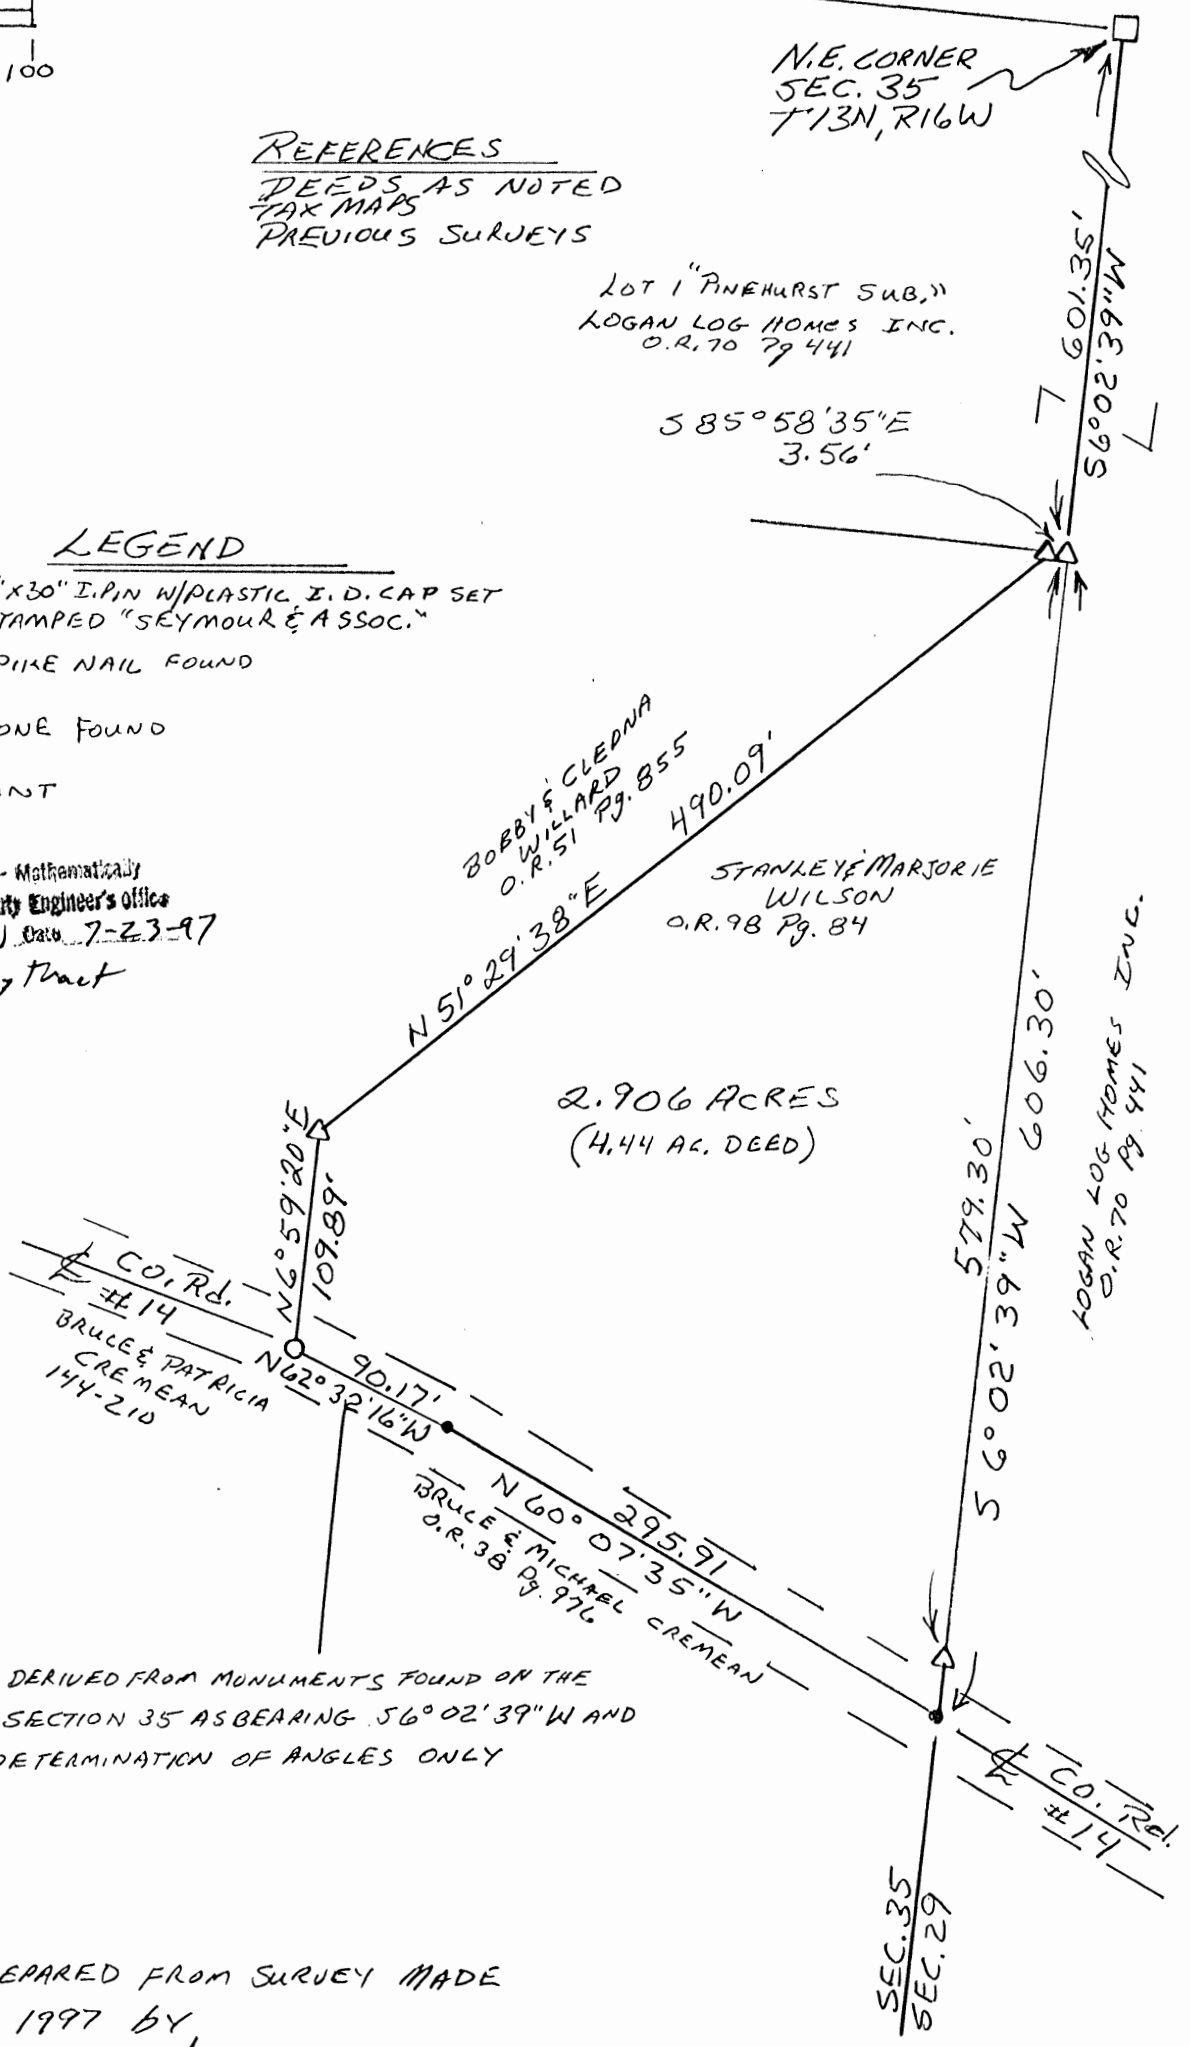 100
N.E. CORNER
SEC. 35
T13N, R16W
REFERENCES
DEEDS AS NOTED
TAX MAPS
PREVIOUS SURVEYS
LOT 1 "PINEHURST SUB."
LOGAN LOG HOMES INC.
O.R. 70 Pg 441
601.35'
S6°02'39"W
S 85°58'35"E
3.56'
LEGEND
"x30" I.PIN W/PLASTIC I.D. CAP SET
TAMPED "SEYMOUR & ASSOC."
PIKE NAIL FOUND
ONE FOUND
NT
- Mathematically
ty Engineer's office
Date 7-23-97
tract
BOBBY & CLEDNA
WILLARD
O.R. 51 Pg. 855
490.09'
N 51°29'38"E
STANLEY & MARJORIE
WILSON
O.R. 98 Pg. 84
2.906 ACRES
(4.44 AC. DEED)
579.30'
606.30'
S 6°02'39"W
LOGAN LOG HOMES INC.
O.R. 70 Pg. 441
N6°59'20"E
109.89'
℄ CO. Rd.
#14
BRUCE & PATRICIA
CREMEAN
144-210
90.17'
N62°32'16"W
295.91
N 60°07'35"W
BRUCE & MICHAEL CREMEAN
O.R. 38 Pg. 976
DERIVED FROM MONUMENTS FOUND ON THE
SECTION 35 AS BEARING S6°02'39"W AND
DETERMINATION OF ANGLES ONLY
℄ CO. Rd.
#14
SEC. 35
SEC. 29
EPARED FROM SURVEY MADE
1997 by